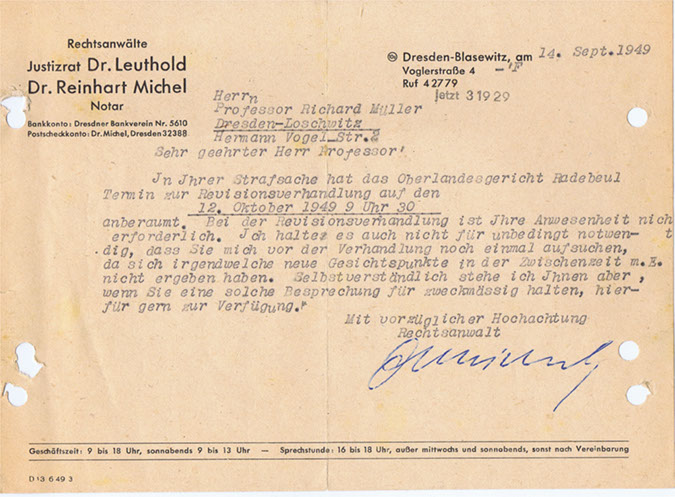 Rechtsanwälte
Justizrat Dr. Leuthold
Dr. Reinhart Michel
Notar
Bankkonto: Dresdner Bankverein Nr. 5610
Postscheckkonto: Dr. Michel, Dresden 32388
Dresden-Blasewitz, am 14. Sept. 1949
Voglerstraße 4 -'F
Ruf 42779
jetzt 31929
Herrn
Professor Richard Müller
Dresden-Loschwitz
Hermann Vogel-Str.2
Sehr geehrter Herr Professor!
Jn Jhrer Strafsache hat das Oberlandesgericht Radebeul
Termin zur Revisionsverhandlung auf den
12. Oktober 1949 9 Uhr 30
anberaumt. Bei der Revisionsverhandlung ist Jhre Anwesenheit nich
erforderlich. Jch haltez es auch nicht für unbedingt notwen- t
dig, dass Sie mich vor der Verhandlung noch einmal aufsuchen,
da sich irgendwelche neue Gesichtspunkte in der Zwischenzeit m.E.
nicht ergeben haben. Selbstverständlich stehe ich Jhnen aber ,
wenn Sie eine solche Besprechung für zweckmässig halten, hier-
für gern zur Verfügung.
Mit vorzüglicher Hochachtung
Rechtsanwalt
Geschäftszeit: 9 bis 18 Uhr, sonnabends 9 bis 13 Uhr — Sprechstunde: 16 bis 18 Uhr, außer mittwochs und sonnabends, sonst nach Vereinbarung
D 13 6 49 3